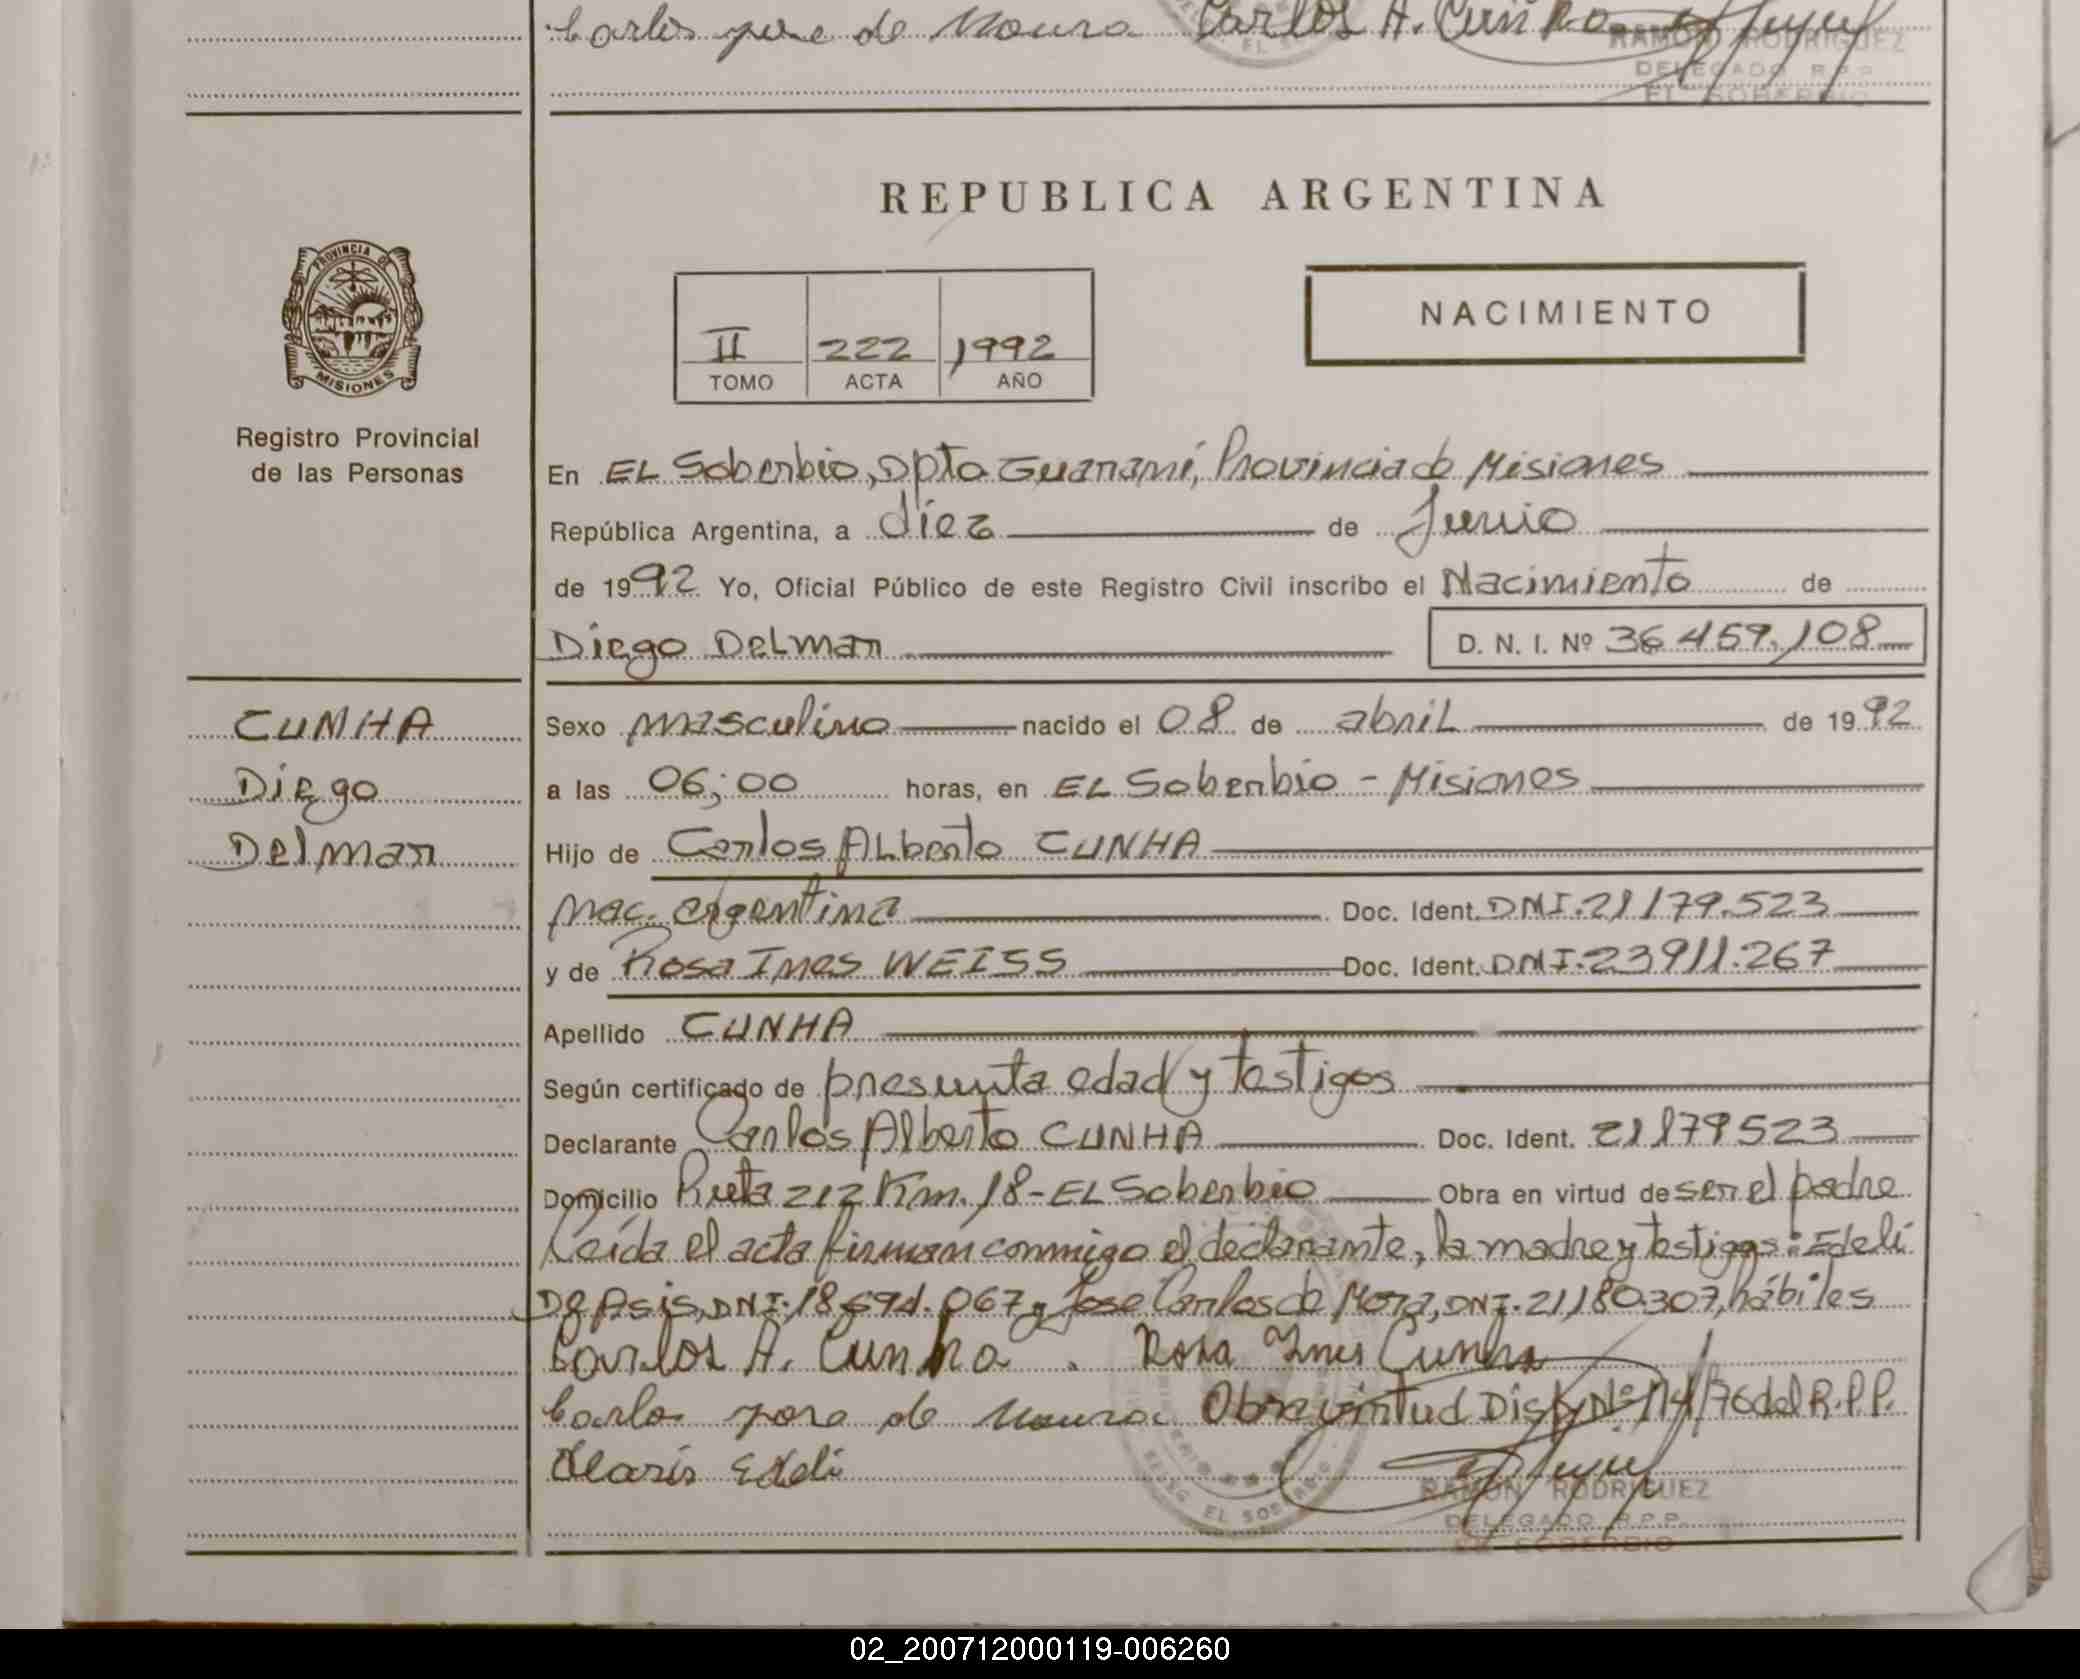 Carlos jose de Moura Carlos A. Cunha
RAMON RODRIGUEZ
DELEGADO R.P.P.
EL SOBERBIO
REPUBLICA ARGENTINA
PROVINCIA DE
MISIONES
Registro Provincial
de las Personas
II 222 1992
TOMO ACTA AÑO
NACIMIENTO
En EL Soberbio, Dpto Guaraní, Provincia de Misiones
República Argentina, a diez de Junio
de 1992 Yo, Oficial Público de este Registro Civil inscribo el Nacimiento de
Diego Delmar D. N. I. Nº 36.459.108
CUNHA
Diego
Delmar
Sexo masculino nacido el 08 de abril de 1992
a las 06;00 horas, en EL Soberbio - Misiones
Hijo de Carlos Alberto CUNHA
Nac. argentina Doc. Ident. DNI.21179.523
y de Rosa Ines WEISS Doc. Ident. DNI.23911.267
Apellido CUNHA
Según certificado de presunta edad y testigos
Declarante Carlos Alberto CUNHA Doc. Ident. 21179523
Domicilio Ruta 212 Km. 18 - EL Soberbio Obra en virtud de ser el padre
Leída el acta firman conmigo el declarante, la madre y testigos: Edeli
De Asis, DNI. 18.694.067 y Jose Carlos de Mora, DNI. 21180.307, hábiles
Carlos A. Cunha. Rosa Ines Cunha
Carlos jose de Moura Obra virtud Disp. Nº 114/76 del R.P.P.
Edeli
EL SOBERBIO
RAMON RODRIGUEZ
DELEGADO R.P.P.
EL SOBERBIO
02_200712000119-006260